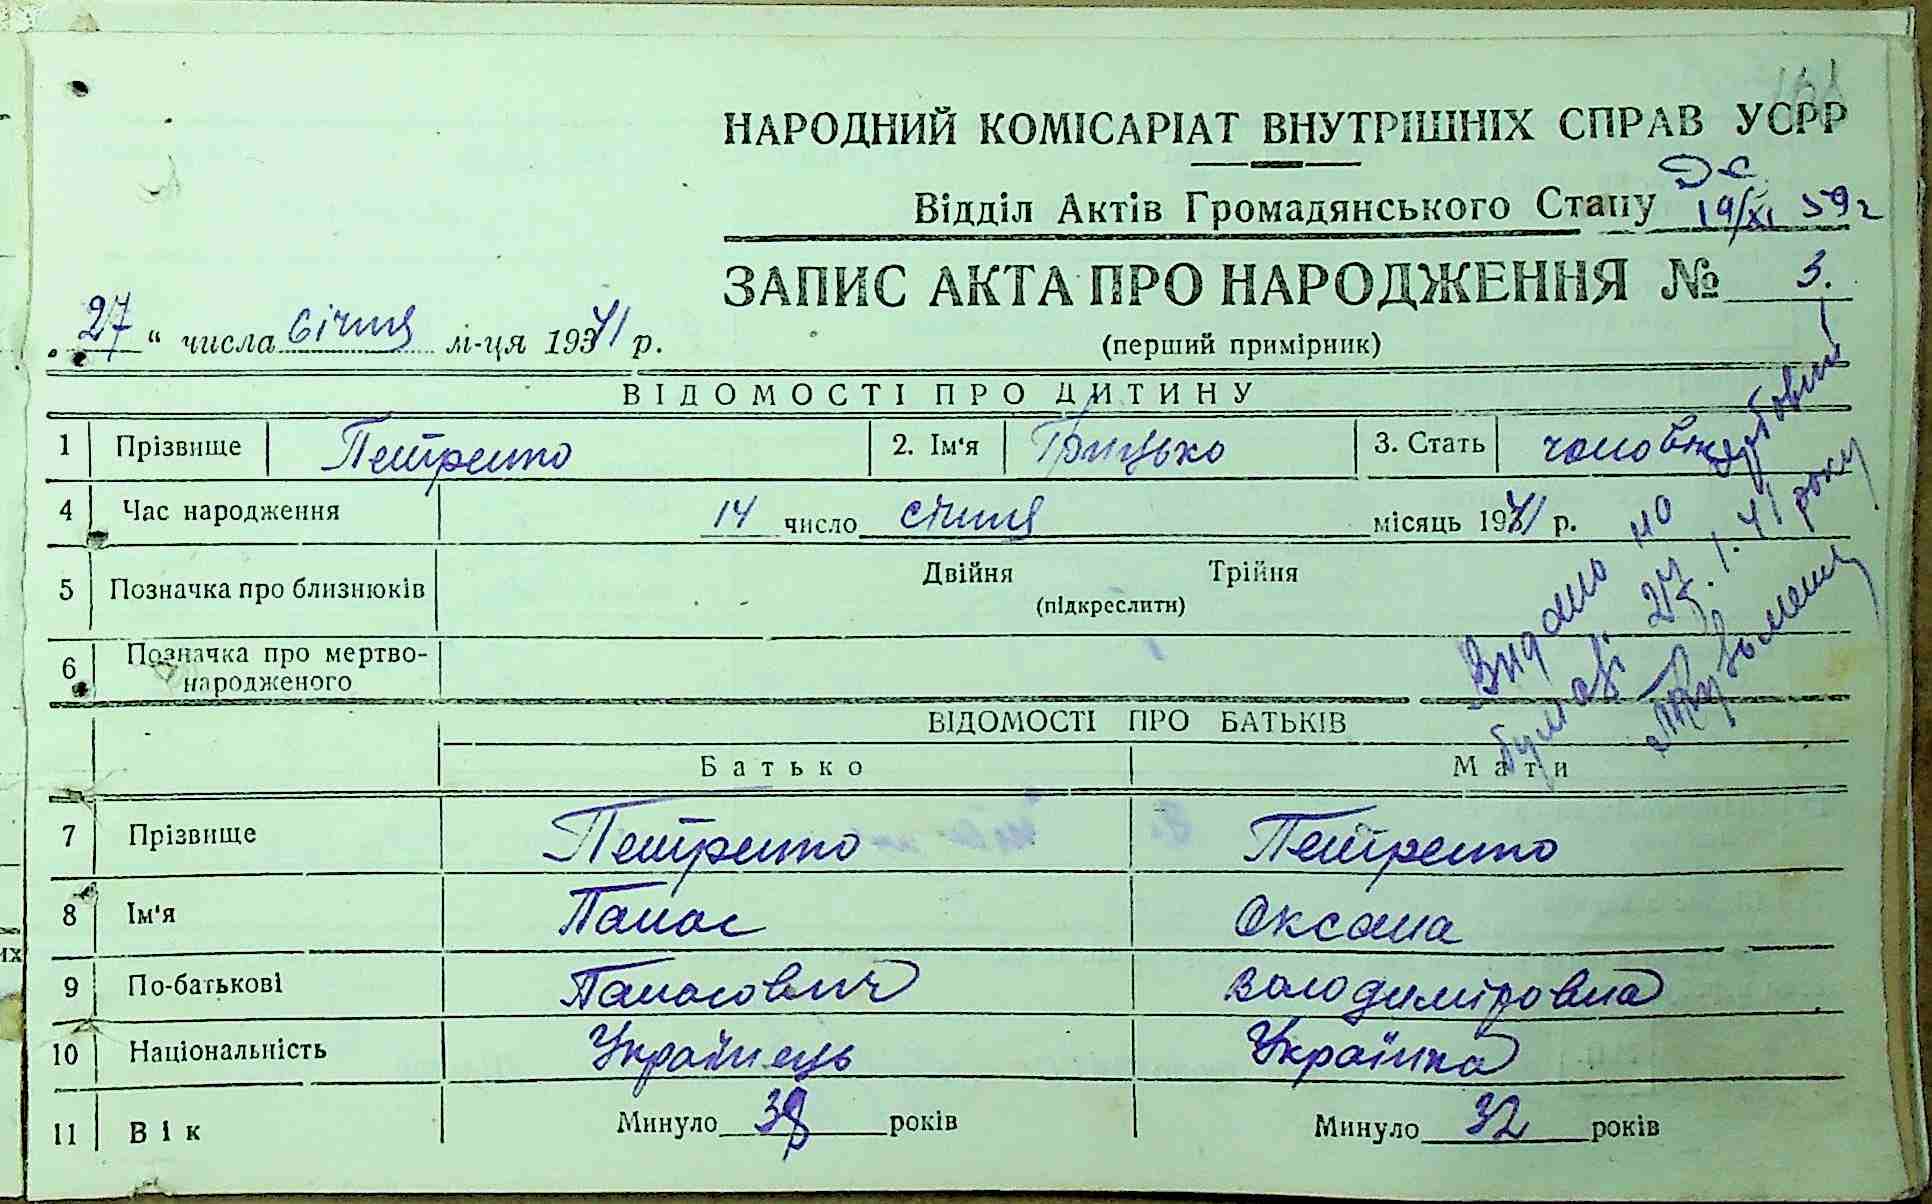 НАРОДНИЙ КОМІСАРІАТ ВНУТРІШНІХ СПРАВ УСРР
Відділ Актів Громадянського Стану 19/XI 59 г
ЗАПИС АКТА ПРО НАРОДЖЕННЯ № 3.
„27“ числа січня м-ця 1941 р.
(перший примірник)
ВІДОМОСТІ ПРО ДИТИНУ
1 Прізвище Петренко 2. Ім'я Грицько 3. Стать
4 Час народження 14 число січня місяць 1941 р.
5 Позначка про близнюків Двійня Трійня
(підкреслити)
6 Позначка про мертво-
народженого
Видано на
27.1.41 року
ВІДОМОСТІ ПРО БАТЬКІВ
Батько Мати
7 Прізвище Петренко Петренко
8 Ім'я Панас Оксана
9 По-батькові Панасович Володиміровна
10 Національність Українець Українка
11 Вік Минуло 38 років Минуло 32 років